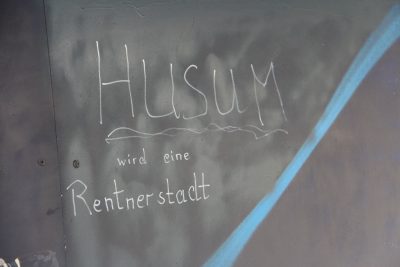 HUSUM
wird eine
Rentnerstadt